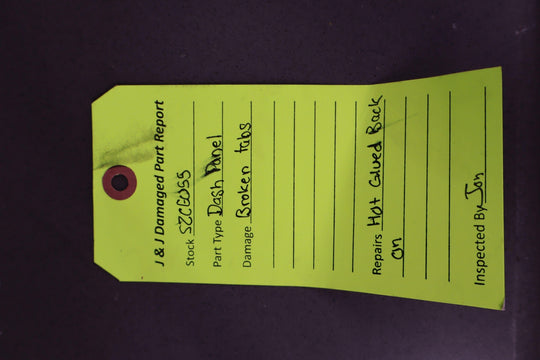 J & J Damaged Part Report
Stock SZCG055
Part Type Dash Panel
Damage Broken tabs
Repairs Hot Glued Back
on
Inspected By Jon